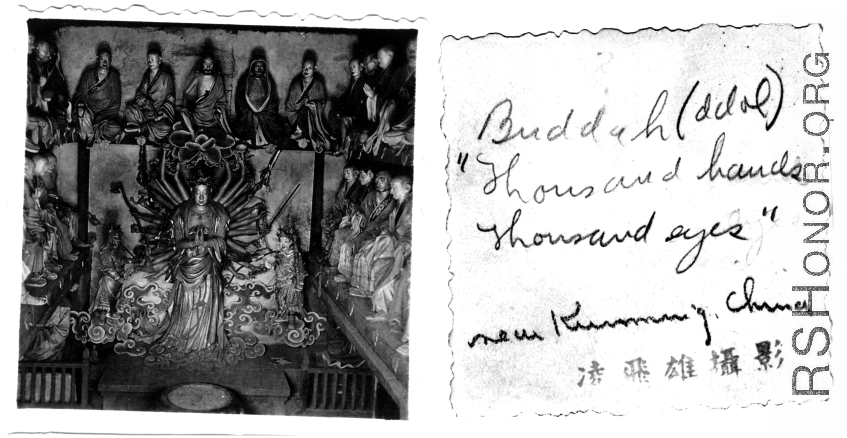 Buddah (idol)
"Thousand hands
Thousand eyes"
near Kunming, China
凌飛雄攝影
RSHONOR.ORG